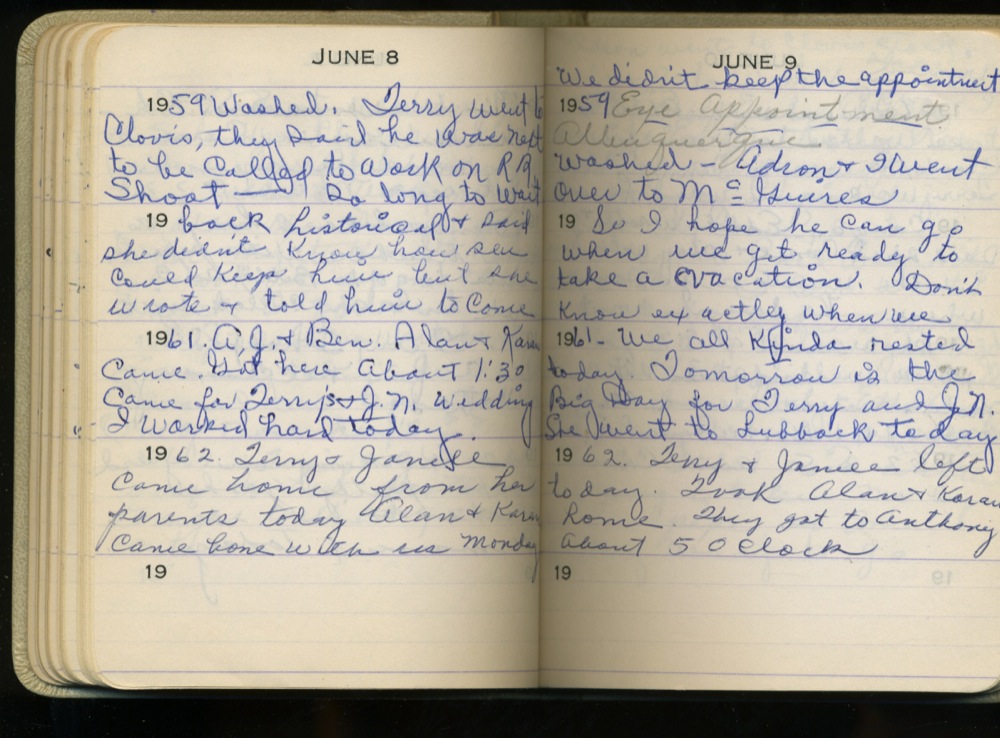 JUNE 8
1959 Washed. Terry went to
Clovis, they said he was next
to be Called to work on R R.
Shoot — So long to wait
19 back historical & said
she didn't Know how
could Keep him but she
wrote & told him to Come
1961. A.J. & Ben. Alan & Karen
Came. Got here About 1:30
Came for Terry's & J.N. Wedding
I Worked hard today.
1962. Terry & Janice
Came home from her
parents today Alan & Karen
Came home with us Monday
19
JUNE 9
We didn't keep the appointment
1959 Eye Appointment
Albuquerque
Washed - Adron & I went
over to Mc Guires
19 So I hope he can go
when we get ready to
take a vacation. Don't
Know ex actley when we
1961- We all Kinda rested
today. Tomorrow is the
Big Day for Terry and J.N.
She went to Lubbock today
1962. Terry & Janice left
today. Took Alan & Karen
Home. They got to Anthony
About 5 O Clock
19